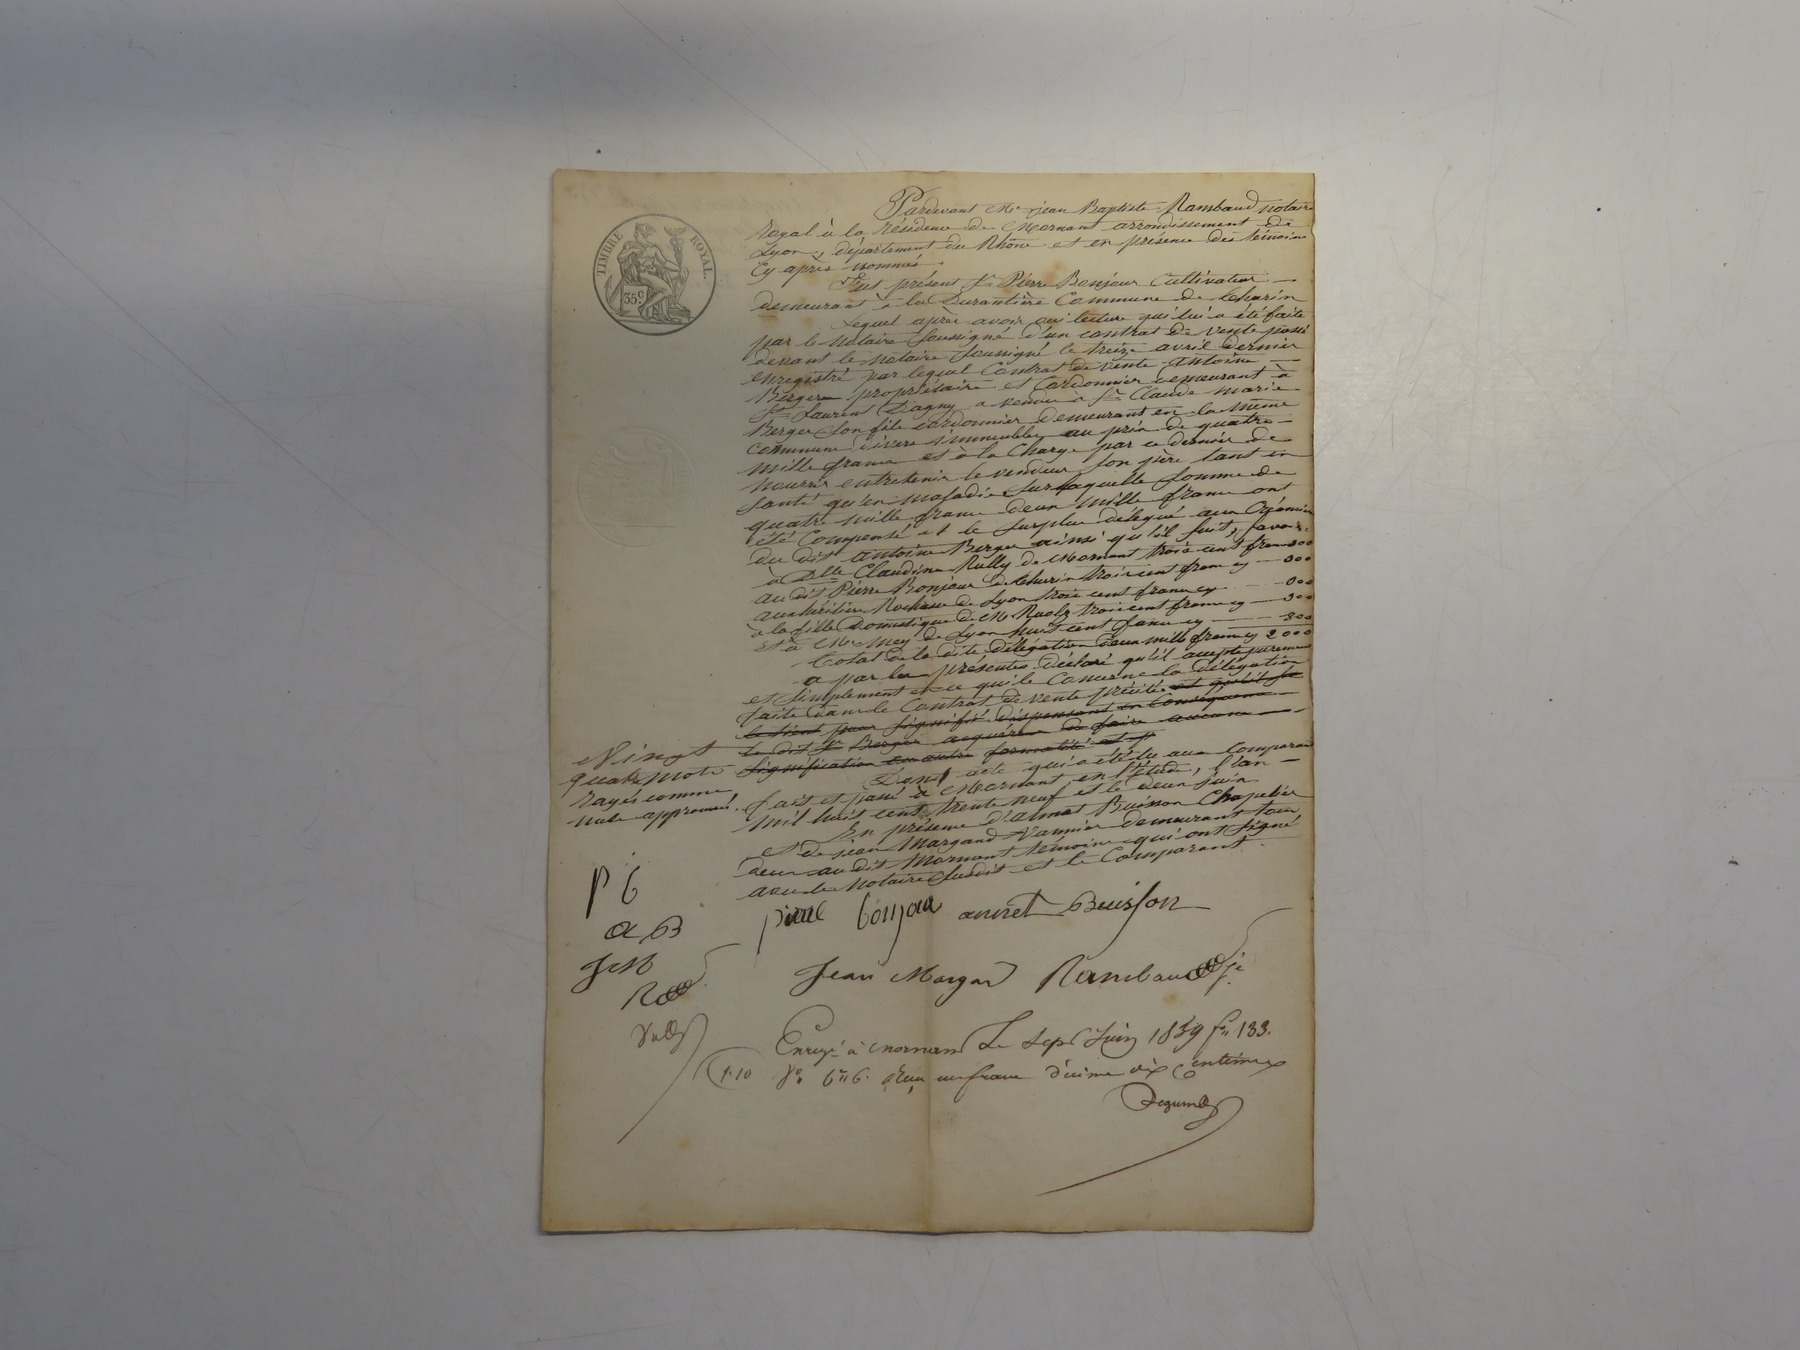 TIMBRE ROYAL.
35c
Pardevant Me jean Baptiste Rambaud notaire
Royal à la Résidence de Mornant arrondissement de
Lyon, département du Rhône et en présence des témoins
Cy après nommés.
Fut présent Sr Pierre Bonjour Cultivateur
demeurant à la Durantière Commune de thurin
Lequel après avoir oui lecture qui lui a été faite
par le notaire soussigné d'un contrat de vente passé
devant le notaire soussigné le treize avril dernier
enregistré par lequel Contrat de vente antoine
Berger propriétaire et Cordonnier demeurant à
St Laurent D'agny a vendu à Sr Claude marie
Berger son fils cordonnier demeurant en la même
commune divers immeubles au prix de quatre
mille francs et à la Charge par ce dernier de
nourrir entretenir le vendeur son père tant en
santé qu'en maladie sur laquelle somme de
quatre mille francs deux mille francs ont
été Compensé et le surplus délégué aux Créanciers
du dit antoine Berger ainsi qu'il suit, savoir.
à Dlle Claudine Rully de Mornant trois cent francs 300
au dit Pierre Bonjour de thurin trois cent francs cy 300
aux héritiers de Lyon trois cent francs cy 300
à la fille Domestique de Mr trois cent francs cy 300
et à Mr Mey de Lyon huit cent francs cy 800
Total de la dite délégation deux mille francs cy 2000
a par les présentes déclaré qu'il accepte purement
et simplement en ce qui le Concerne la délégation
faite dans le Contrat de vente précité et qu'il se
le tient pour signifié dispensant en Conséquence
le dit Sr Berger acquéreur de faire aucune
signification ou autre formalité
Vingt
quatre mots
rayés comme
nuls approuvés.
Dont acte qui a été lu au Comparant
fait et passé à Mornant en l'étude, l'an
mil huit cent trente neuf et le deux juin
En présence d'aimet Buisson Chapelier
et de jean Margand Vannier demeurant tous
deux au dit Mornant témoins qui ont signé
avec le notaire susdit et le Comparant.
P b
a B
J M
R
pierre bonjour aimet Buisson
Jean Margand Rambaud
Enregé à Mornant Le sept Juin 1839 fo 133.
1.10 Vo Co 6. Reçu un franc décime dix Centimes